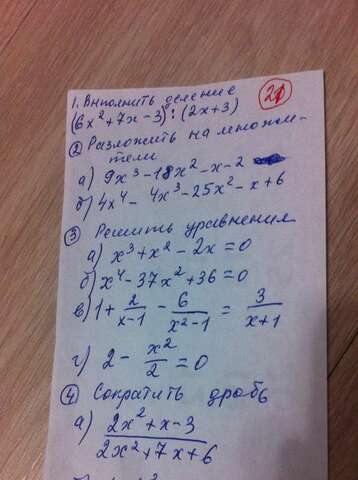 1. Выполнить деление
21
(6x²+7x-3):(2x+3)
② Разложить на множи-
тели
а) 9x³-18x²-x-2
б) 4x⁴- 4x³-25x²-x+6
③ Решить уравнения
а) x³+x²-2x=0
б) x⁴-37x²+36=0
в) 1+ 2/(x-1) - 6/(x²-1) = 3/(x+1)
г) 2- x²/2 =0
④ Сократить дробь
а) (2x²+x-3)/(2x²+7x+6)